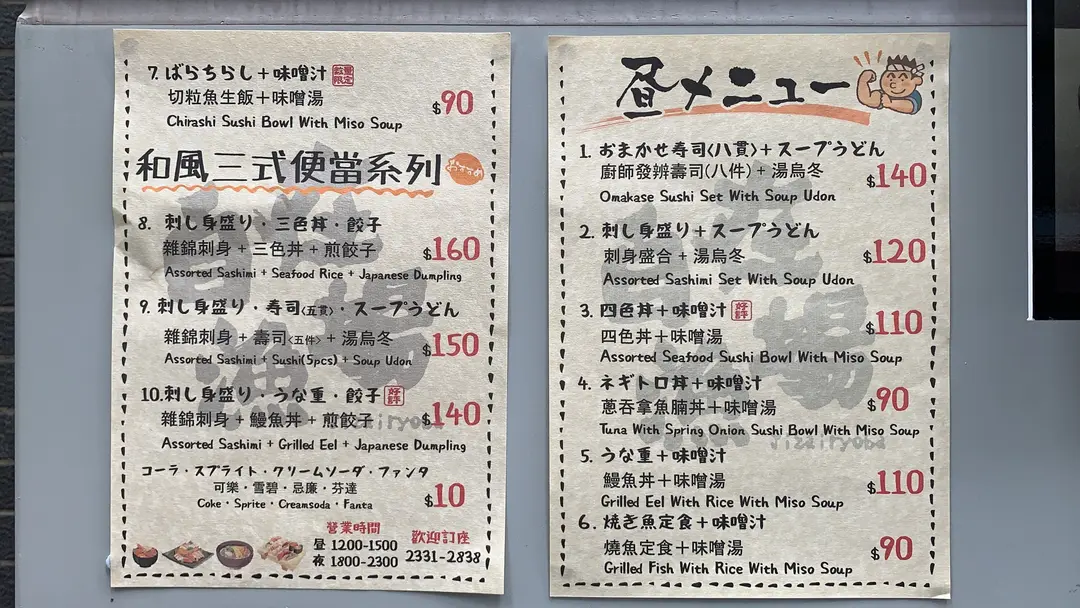 7. ばらちらし+味噌汁 数量限定
切粒魚生飯+味噌湯
$90
Chirashi Sushi Bowl With Miso Soup
和風三式便當系列 おすすめ
8. 刺し身盛り・三色丼・餃子
雜錦刺身 + 三色丼 + 煎餃子
$160
Assorted Sashimi + Seafood Rice + Japanese Dumpling
9. 刺し身盛り・寿司〈五貫〉・スープうどん
雜錦刺身 + 壽司〈五件〉 + 湯烏冬
$150
Assorted Sashimi + Sushi(5pcs) + Soup Udon
10.刺し身盛り・うな重・餃子 好評
雜錦刺身 + 鰻魚丼 + 煎餃子
$140
Assorted Sashimi + Grilled Eel + Japanese Dumpling
コーラ・スプライト・クリームソーダ・ファンタ
可樂・雪碧・忌廉・芬達
$10
Coke・Sprite・Creamsoda・Fanta
営業時間
昼 1200-1500
夜 1800-2300
歡迎訂座
2331-2838
昼メニュー
1. おまかせ寿司〈八貫〉+スープうどん
廚師發辦壽司(八件) + 湯烏冬
$140
Omakase Sushi Set With Soup Udon
2. 刺し身盛り+スープうどん
刺身盛合 + 湯烏冬
$120
Assorted Sashimi Set With Soup Udon
3. 四色丼+味噌汁 好評
四色丼+味噌湯
$110
Assorted Seafood Sushi Bowl With Miso Soup
4. ネギトロ丼+味噌汁
蔥吞拿魚腩丼+味噌湯
$90
Tuna With Spring Onion Sushi Bowl With Miso Soup
5. うな重+味噌汁
鰻魚丼+味噌湯
$110
Grilled Eel With Rice With Miso Soup
6. 焼き魚定食+味噌汁
燒魚定食+味噌湯
$90
Grilled Fish With Rice With Miso Soup